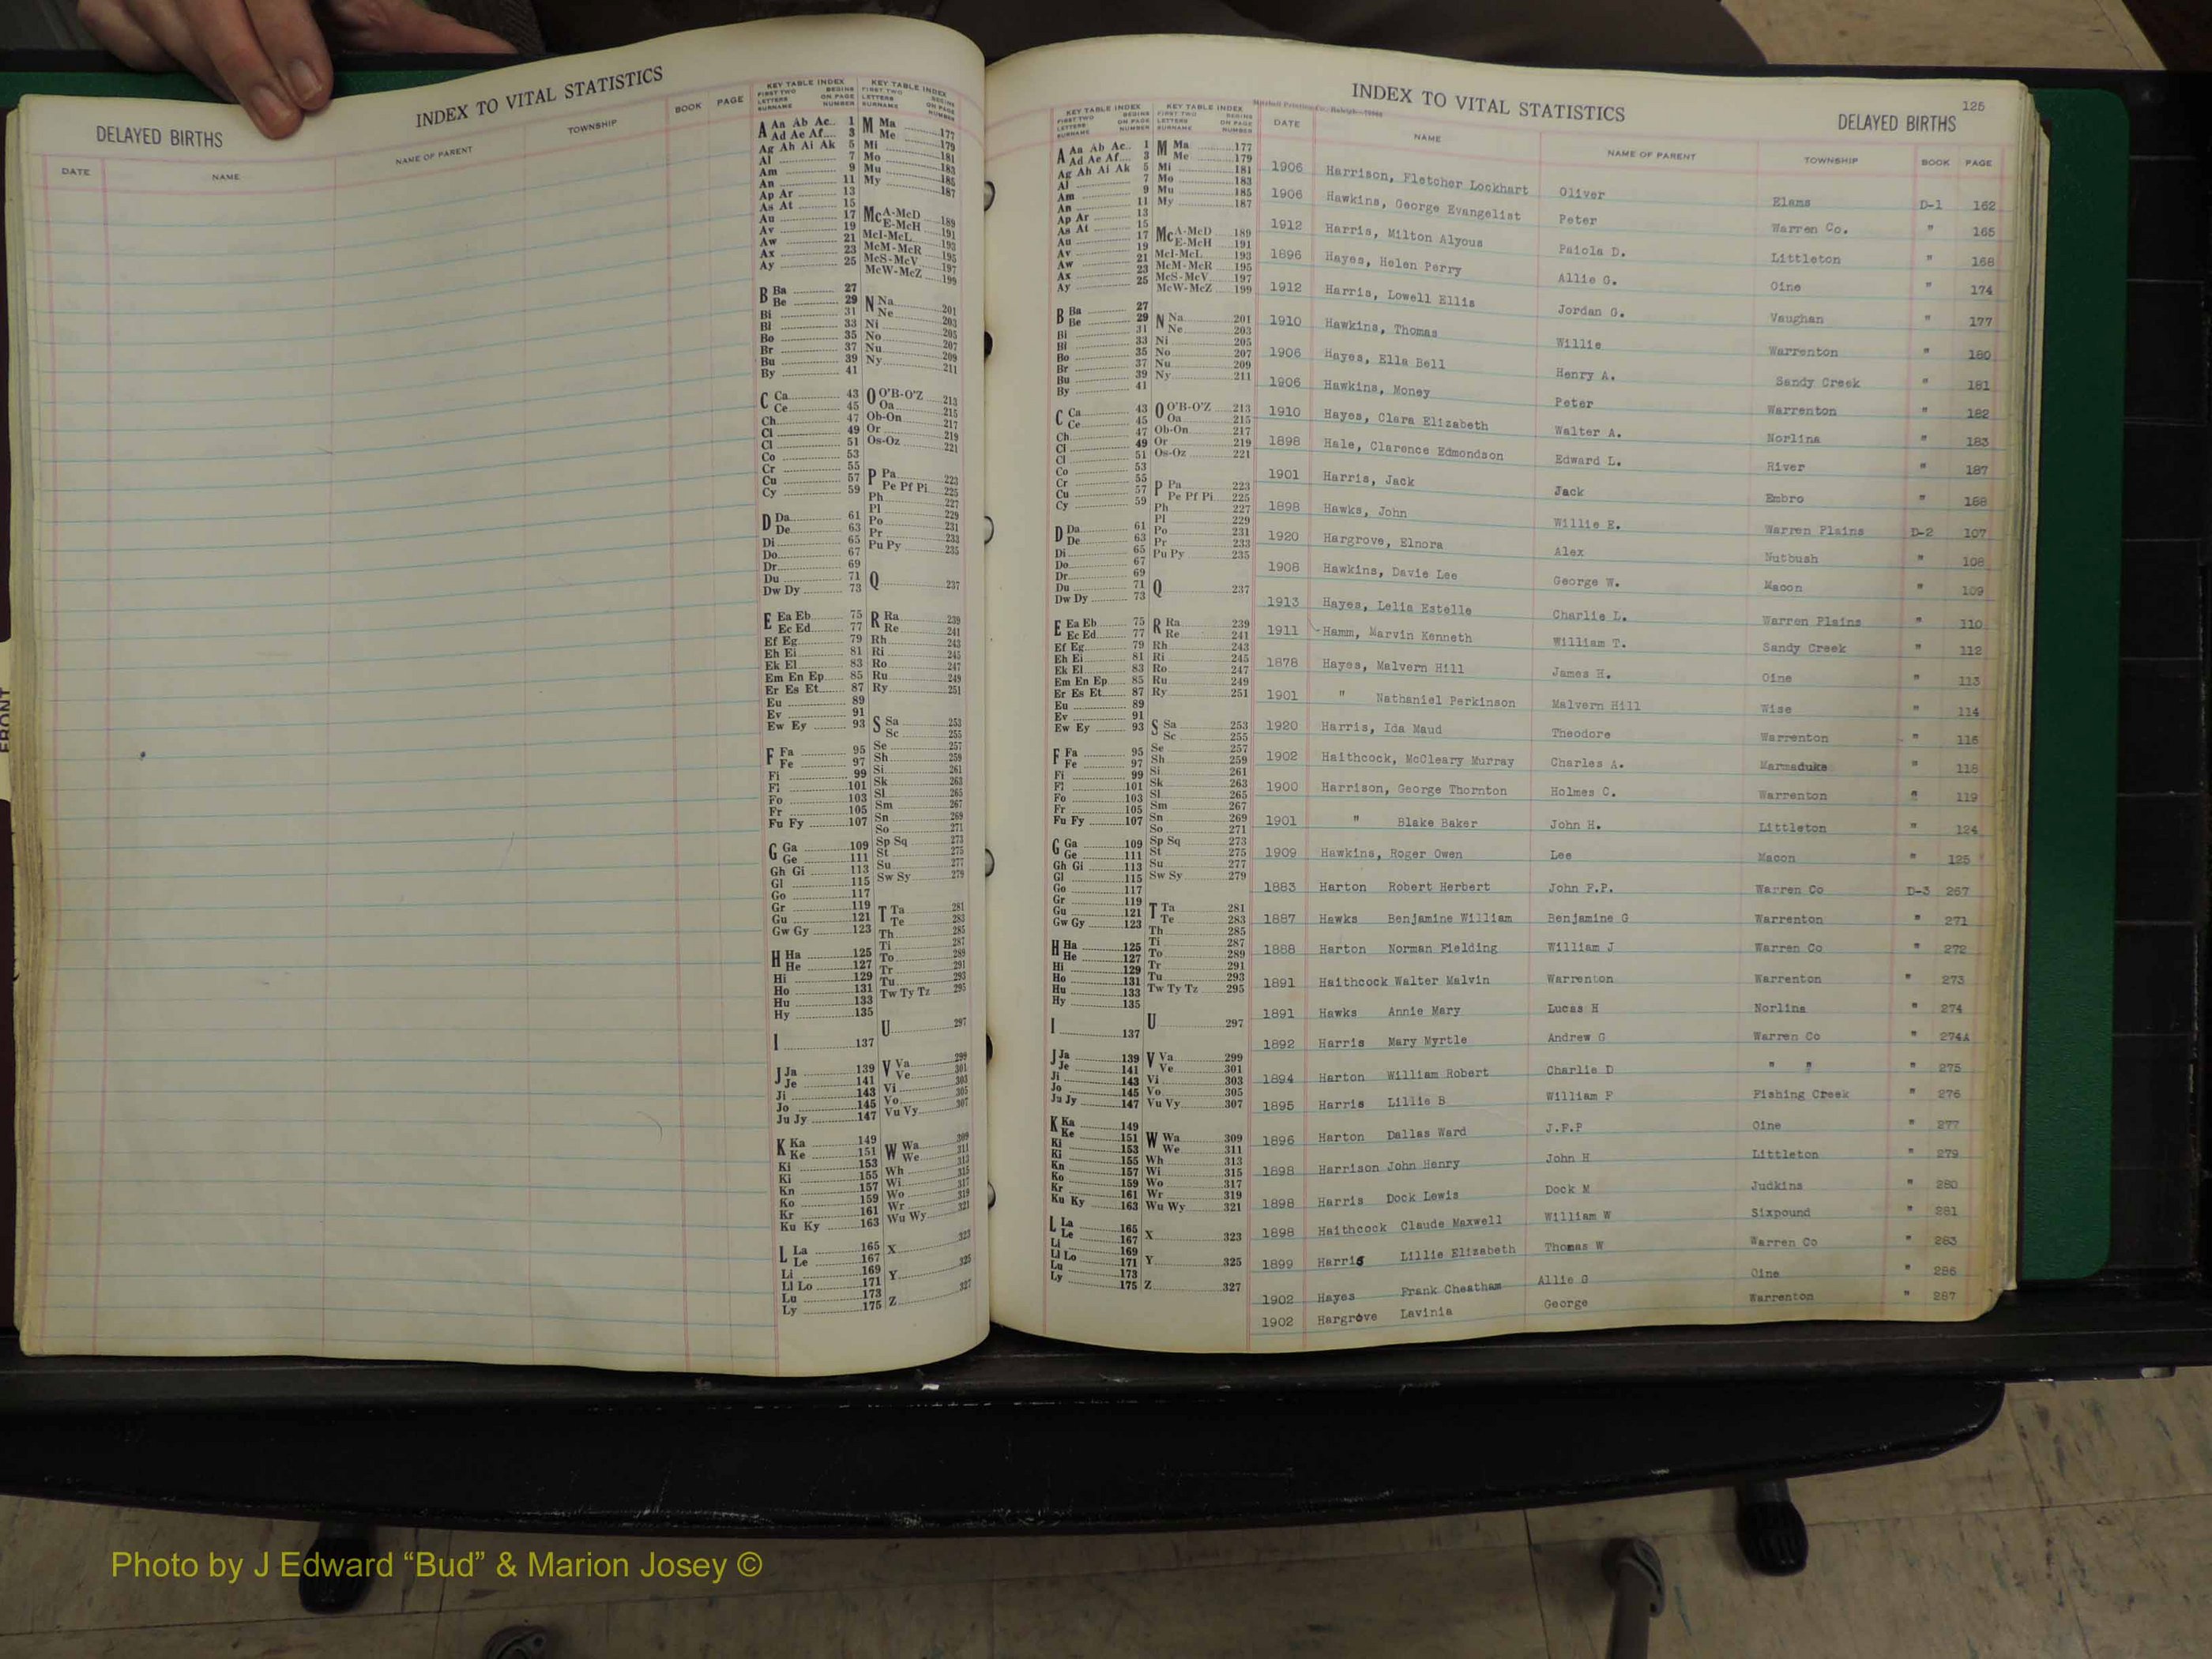 INDEX TO VITAL STATISTICS
DELAYED BIRTHS
DATE NAME NAME OF PARENT TOWNSHIP BOOK PAGE
KEY TABLE INDEX KEY TABLE INDEX
FIRST TWO LETTERS SURNAME BEGINS ON PAGE NUMBER FIRST TWO LETTERS SURNAME BEGINS ON PAGE NUMBER
A Aa Ab Ac 1 M Ma 177
Ad Ae Af 3 Me 179
Ag Ah Ai Ak 5 Mi 181
Al 7 Mo 183
Am 9 Mu 185
An 11 My 187
Ap Ar 13
As At 15
Au 17 Mc A-McD 189
Av 19 E-McH 191
Aw 21 McI-McL 193
Ax 23 McM-McR 195
Ay 25 McS-McV 197
McW-McZ 199
B Ba 27
Be 29 N Na 201
Bi 31 Ne 203
Bl 33 Ni 205
Bo 35 No 207
Br 37 Nu 209
Bu 39 Ny 211
By 41
C Ca 43 O O'B-O'Z 213
Ce 45 Oa 215
Ch 47 Ob-On 217
Ci 49 Or 219
Cl 51 Os-Oz 221
Co 53
Cr 55 P Pa 223
Cu 57 Pe Pf Pi 225
Cy 59 Ph 227
Pl 229
D Da 61 Po 231
De 63 Pr 233
Di 65 Pu Py 235
Do 67
Dr 69
Du 71 Q 237
Dw Dy 73
E Ea Eb 75 R Ra 239
Ec Ed 77 Re 241
Ef Eg 79 Rh 243
Eh Ei 81 Ri 245
Ek El 83 Ro 247
Em En Ep 85 Ru 249
Er Es Et 87 Ry 251
Eu 89
Ev 91
Ew Ey 93 S Sa 253
Sc 255
F Fa 95 Se 257
Fe 97 Sh 259
Fi 99 Si 261
Fl 101 Sk 263
Fo 103 Sl 265
Fr 105 Sm 267
Fu Fy 107 Sn 269
So 271
G Ga 109 Sp Sq 273
Ge 111 St 275
Gh Gi 113 Su 277
Gl 115 Sw Sy 279
Go 117
Gr 119 T Ta 281
Gu 121 Te 283
Gw Gy 123 Th 285
Ti 287
H Ha 125 To 289
He 127 Tr 291
Hi 129 Tu 293
Ho 131 Tw Ty Tz 295
Hu 133
Hy 135
U 297
I 137
J Ja 139 V Va 299
Je 141 Ve 301
Ji 143 Vi 303
Jo 145 Vo 305
Ju Jy 147 Vu Vy 307
K Ka 149 W Wa 309
Ke 151 We 311
Ki 153 Wh 313
Kl 155 Wi 315
Kn 157 Wo 317
Ko 159 Wr 319
Kr 161 Wu Wy 321
Ku Ky 163
L La 165 X 323
Le 167
Li 169 Y 325
Ll Lo 171
Lu 173 Z 327
Ly 175
INDEX TO VITAL STATISTICS
125
DELAYED BIRTHS
DATE NAME NAME OF PARENT TOWNSHIP BOOK PAGE
1906 Harrison, Fletcher Lockhart Oliver Elams D-1 162
1906 Hawkins, George Evangelist Peter Warren Co. " 165
1912 Harris, Milton Alyous Paiola D. Littleton " 168
1896 Hayes, Helen Perry Allie G. Oine " 174
1912 Harris, Lowell Ellis Jordan G. Vaughan " 177
1910 Hawkins, Thomas Willie Warrenton " 180
1906 Hayes, Ella Bell Henry A. Sandy Creek " 181
1906 Hawkins, Money Peter Warrenton " 182
1910 Hayes, Clara Elizabeth Walter A. Norlina " 183
1898 Hale, Clarence Edmondson Edward L. River " 187
1901 Harris, Jack Jack Embro " 188
1898 Hawks, John Willie E. Warren Plains D-2 107
1920 Hargrove, Elnora Alex Nutbush " 108
1908 Hawkins, Davie Lee George W. Macon " 109
1913 Hayes, Lelia Estelle Charlie L. Warren Plains " 110
1911 Hamm, Marvin Kenneth William T. Sandy Creek " 112
1878 Hayes, Malvern Hill James H. Oine " 113
1901 " Nathaniel Perkinson Malvern Hill Wise " 114
1920 Harris, Ida Maud Theodore Warrenton " 116
1902 Haithcock, McCleary Murray Charles A. Marmaduke " 118
1900 Harrison, George Thornton Holmes C. Warrenton " 119
1901 " Blake Baker John H. Littleton " 124
1909 Hawkins, Roger Owen Lee Macon " 125
1883 Harton Robert Herbert John F.P. Warren Co D-3 267
1887 Hawks Benjamine William Benjamine G Warrenton " 271
1888 Harton Norman Fielding William J Warren Co " 272
1891 Haithcock Walter Malvin Warrenton Warrenton " 273
1891 Hawks Annie Mary Lucas H Norlina " 274
1892 Harris Mary Myrtle Andrew G Warren Co " 274A
1894 Harton William Robert Charlie D " " " 275
1895 Harris Lillie B William F Fishing Creek " 276
1896 Harton Dallas Ward J.F.P Oine " 277
1898 Harrison John Henry John H Littleton " 279
1898 Harris Dock Lewis Dock M Judkins " 280
1898 Haithcock Claude Maxwell William W Sixpound " 281
1899 Harris Lillie Elizabeth Thomas W Warren Co " 283
1902 Hayes Frank Cheatham Allie G Oine " 286
1902 Hargrove Lavinia George Warrenton " 287
FRONT
Photo by J Edward “Bud” & Marion Josey ©